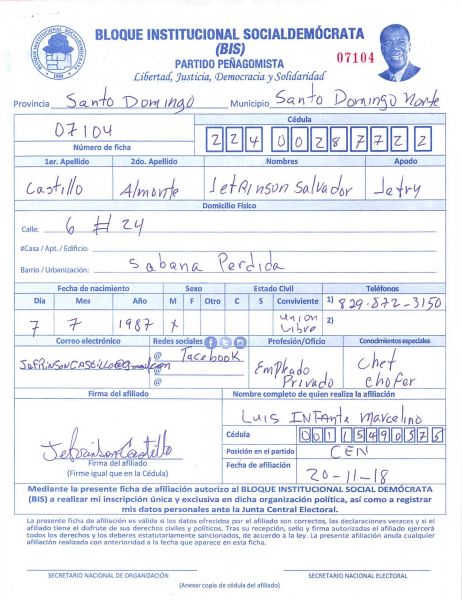 BLOQUE INSTITUCIONAL SOCIALDEMÓCRATA
(BIS)
PARTIDO PEÑAGOMISTA
Libertad, Justicia, Democracia y Solidaridad
07104
Provincia Santo Domingo Municipio Santo Domingo Norte
07104
Número de ficha
Cédula
22400287722
1er. Apellido 2do. Apellido Nombres Apodo
Castillo Almonte Jefrinson Salvador Jefry
Domicilio Físico
Calle: 6 # 24
#Casa / Apt. / Edificio:
Barrio / Urbanización: Sabana Perdida
Fecha de nacimiento Sexo Estado Civil Teléfonos
Día Mes Año M F Otro C S Conviviente 1) 829-872-3150
7 7 1987 x Union Libre 2)
Correo electrónico Redes sociales Profesión/Oficio Conocimientos especiales
JefrinsonCastillo@gmail.com @ Facebook
@
@
Empleado Privado
Chef
Chofer
Firma del afiliado Nombre completo de quien realiza la afiliación
Luis Infante Marcelino
JefrinsonCastillo
Firma del afiliado
(Firme igual que en la Cédula)
Cédula 00115490575
Posición en el partido CEN
Fecha de afiliación 20-11-18
Mediante la presente ficha de afiliación autorizo al BLOQUE INSTITUCIONAL SOCIAL DEMÓCRATA
(BIS) a realizar mi inscripción única y exclusiva en dicha organización política, así como a registrar
mis datos personales ante la Junta Central Electoral.
La presente ficha de afiliación es válida si los datos ofrecidos por el afiliado son correctos, las declaraciones veraces y si el
afiliado tiene el disfrute de sus derechos civiles y políticos. Tras su recepción, sello y firma autorizadas el afiliado ejercerá
todos los derechos y los deberes estatutariamente sancionados, de acuerdo a la ley. La presente afiliación anula cualquier
afiliación realizada con anterioridad a la fecha que aparece en esta ficha.
SECRETARIO NACIONAL DE ORGANIZACIÓN SECRETARIO NACIONAL ELECTORAL
(Anexar copia de cédula del afiliado)